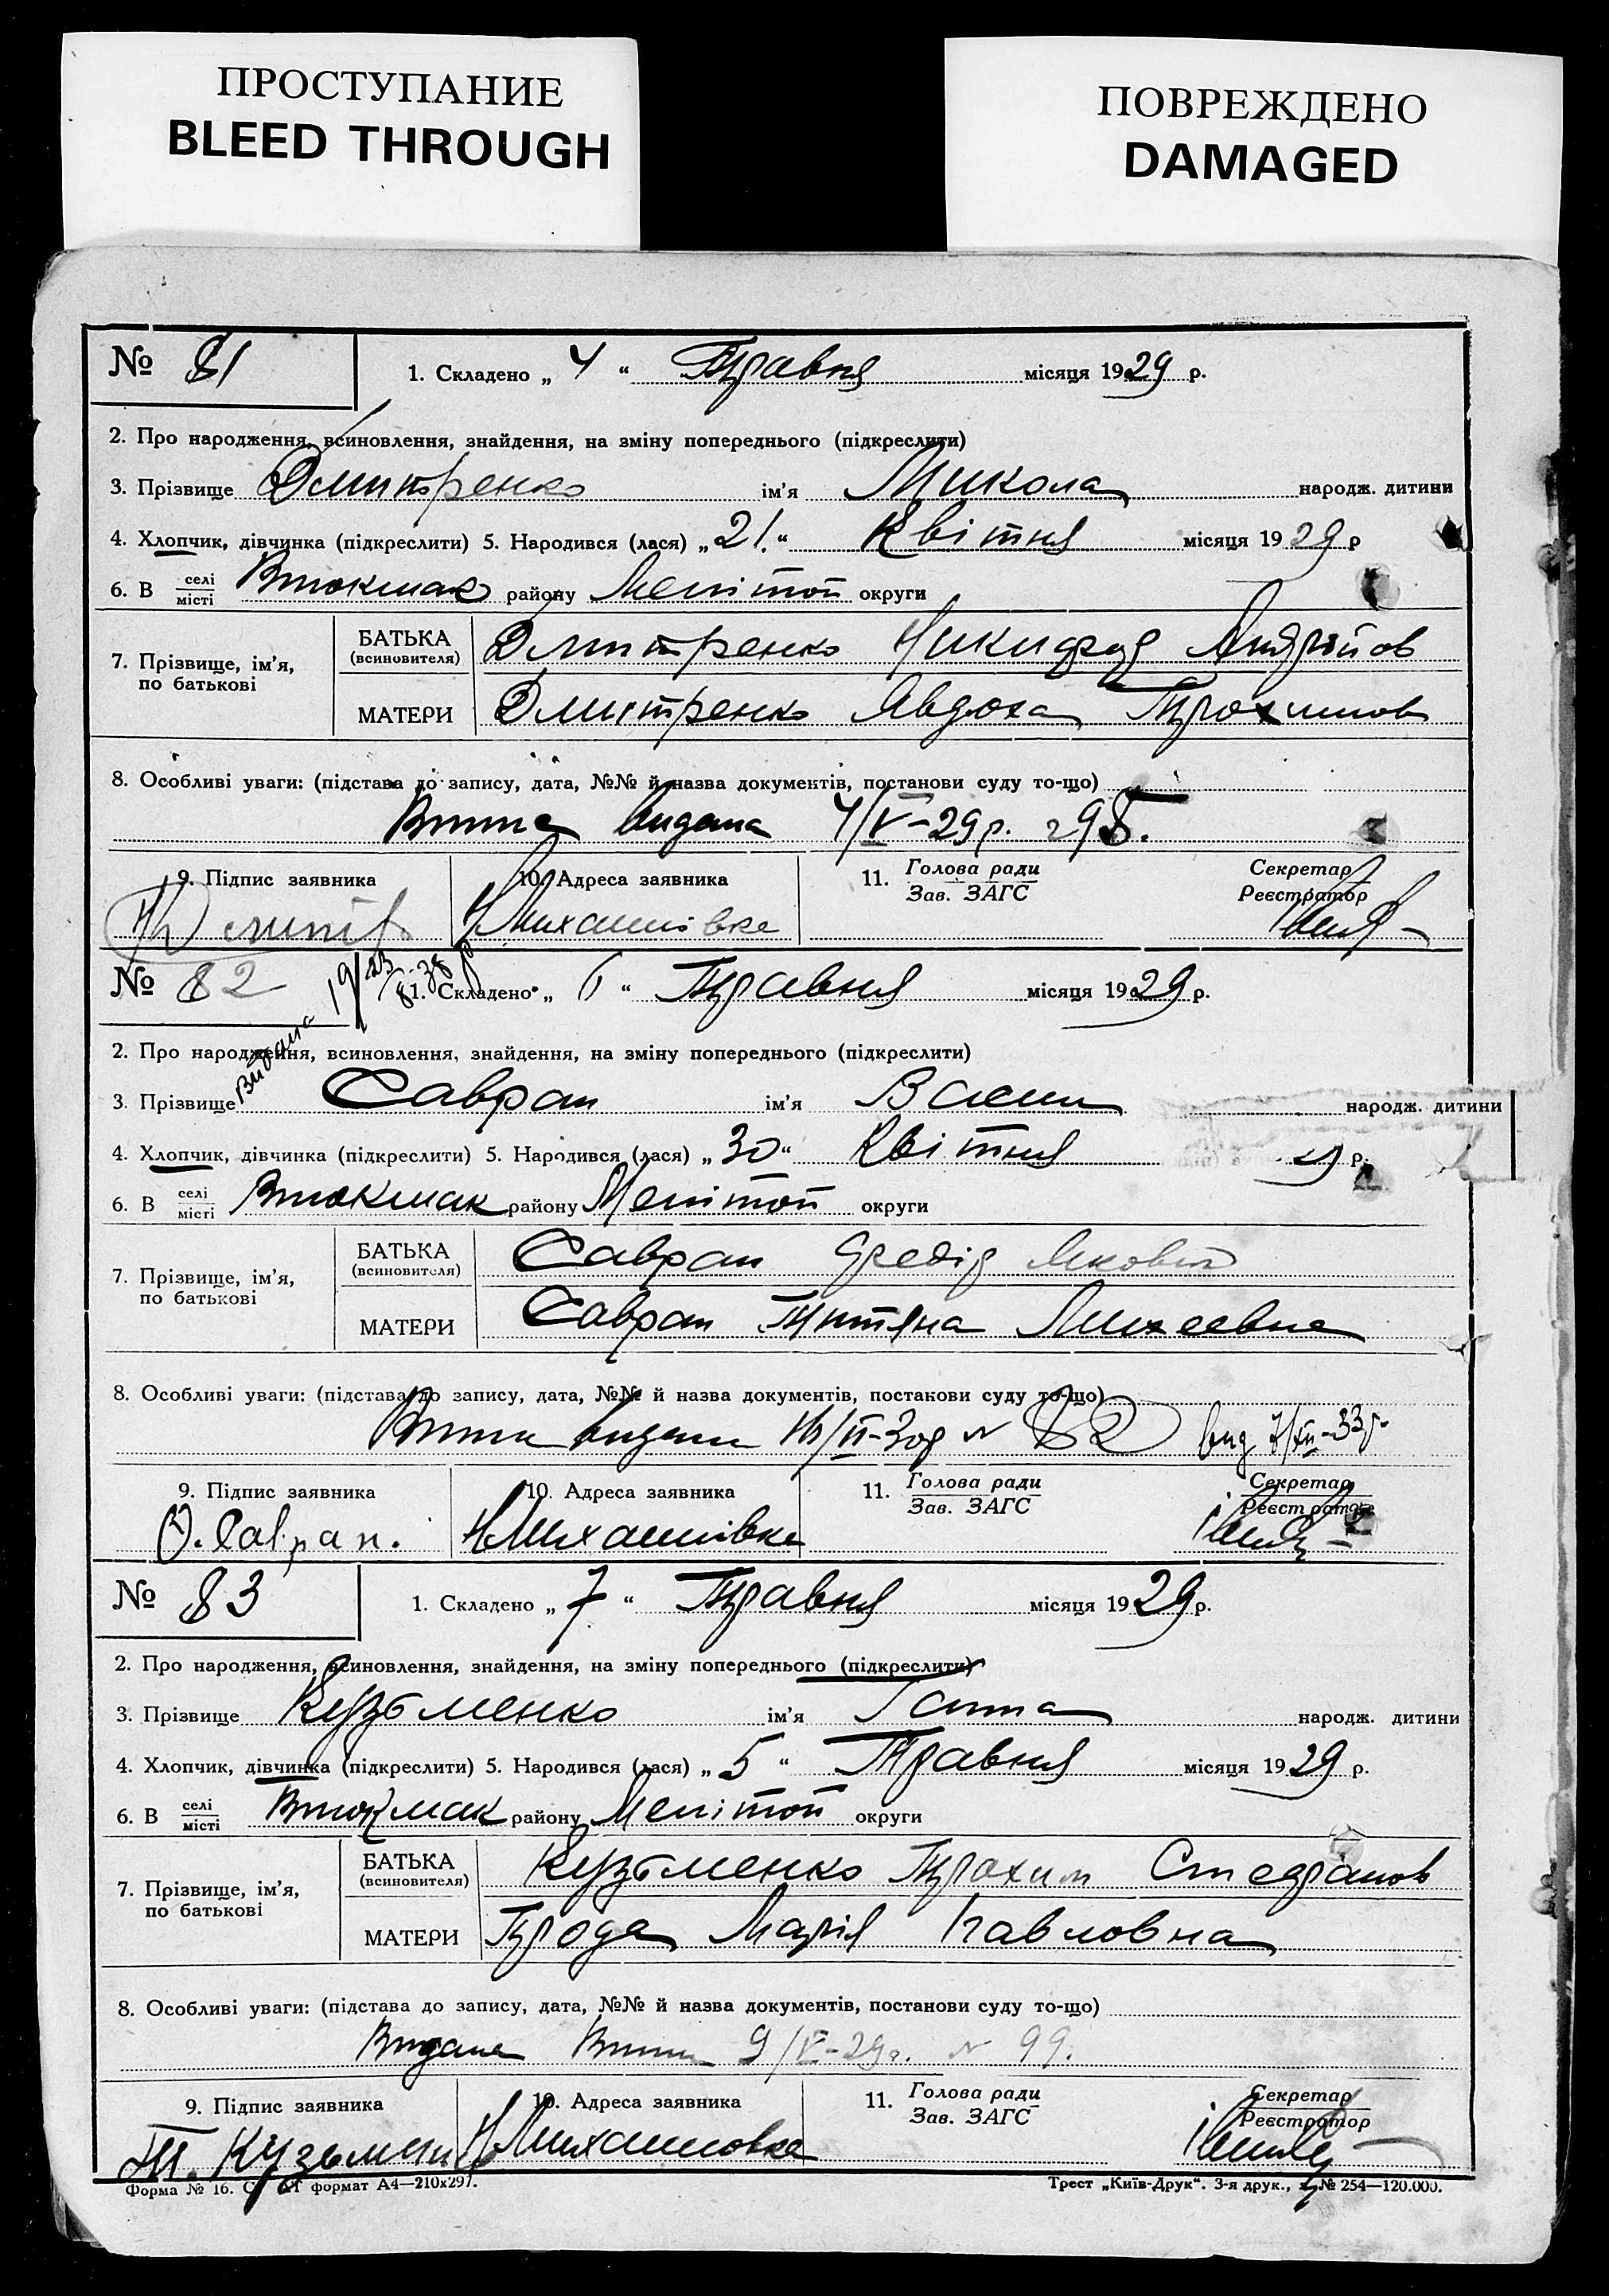 ПРОСТУПАНИЕ
BLEED THROUGH
ПОВРЕЖДЕНО
DAMAGED
№ 81 1. Складено „ 4 “ Травня місяця 1929 р.
2. Про народження, всиновлення, знайдення, на зміну попереднього (підкреслити)
3. Прізвище Дмитренко ім'я Микола народж. дитини
4. Хлопчик, дівчинка (підкреслити) 5. Народився (лася) „ 21. “ Квітня місяця 1929 р
6. В селі місті Втокмак району Мелітоп округи
7. Прізвище, ім'я, по батькові
БАТЬКА (всиновителя) Дмитренко Андрійов
МАТЕРИ Дмитренко Явдоха Трохимов
8. Особливі уваги: (підстава до запису, дата, №№ й назва документів, постанови суду то-що)
видана 4/V-29р.
9. Підпис заявника 10. Адреса заявника 11. Голова ради Зав. ЗАГС Секретар Реєстратор
Н Михайлівка
№ 82 1. Складено „ 6 “ Травня місяця 1929 р.
Видана
2. Про народження, всиновлення, знайдення, на зміну попереднього (підкреслити)
3. Прізвище Савран ім'я народж. дитини
4. Хлопчик, дівчинка (підкреслити) 5. Народився (лася) „ 30 “ Квітня р.
6. В селі місті Втокмак району Мелітоп округи
7. Прізвище, ім'я, по батькові
БАТЬКА (всиновителя) Савран
МАТЕРИ Савран Михеевна
8. Особливі уваги: (підстава до запису, дата, №№ й назва документів, постанови суду то-що)
82
9. Підпис заявника 10. Адреса заявника 11. Голова ради Зав. ЗАГС Секретар Реєстратор
Савран. Н Михайлівка
№ 83 1. Складено „ 7 “ Травня місяця 1929 р.
2. Про народження, всиновлення, знайдення, на зміну попереднього (підкреслити)
3. Прізвище Кузьменко ім'я Ганна народж. дитини
4. Хлопчик, дівчинка (підкреслити) 5. Народився (лася) „ 5 “ Травня місяця 1929 р.
6. В селі місті Втокмак району Мелітоп округи
7. Прізвище, ім'я, по батькові
БАТЬКА (всиновителя) Кузьменко Трохим Стефанов
МАТЕРИ Марія Павловна
8. Особливі уваги: (підстава до запису, дата, №№ й назва документів, постанови суду то-що)
Видана 9/V-29р. N 99.
9. Підпис заявника 10. Адреса заявника 11. Голова ради Зав. ЗАГС Секретар Реєстратор
Т. Н Михайловка
Форма № 16. формат А4—210х297.
Трест „Київ-Друк“. 3-я друк., № 254—120.000.